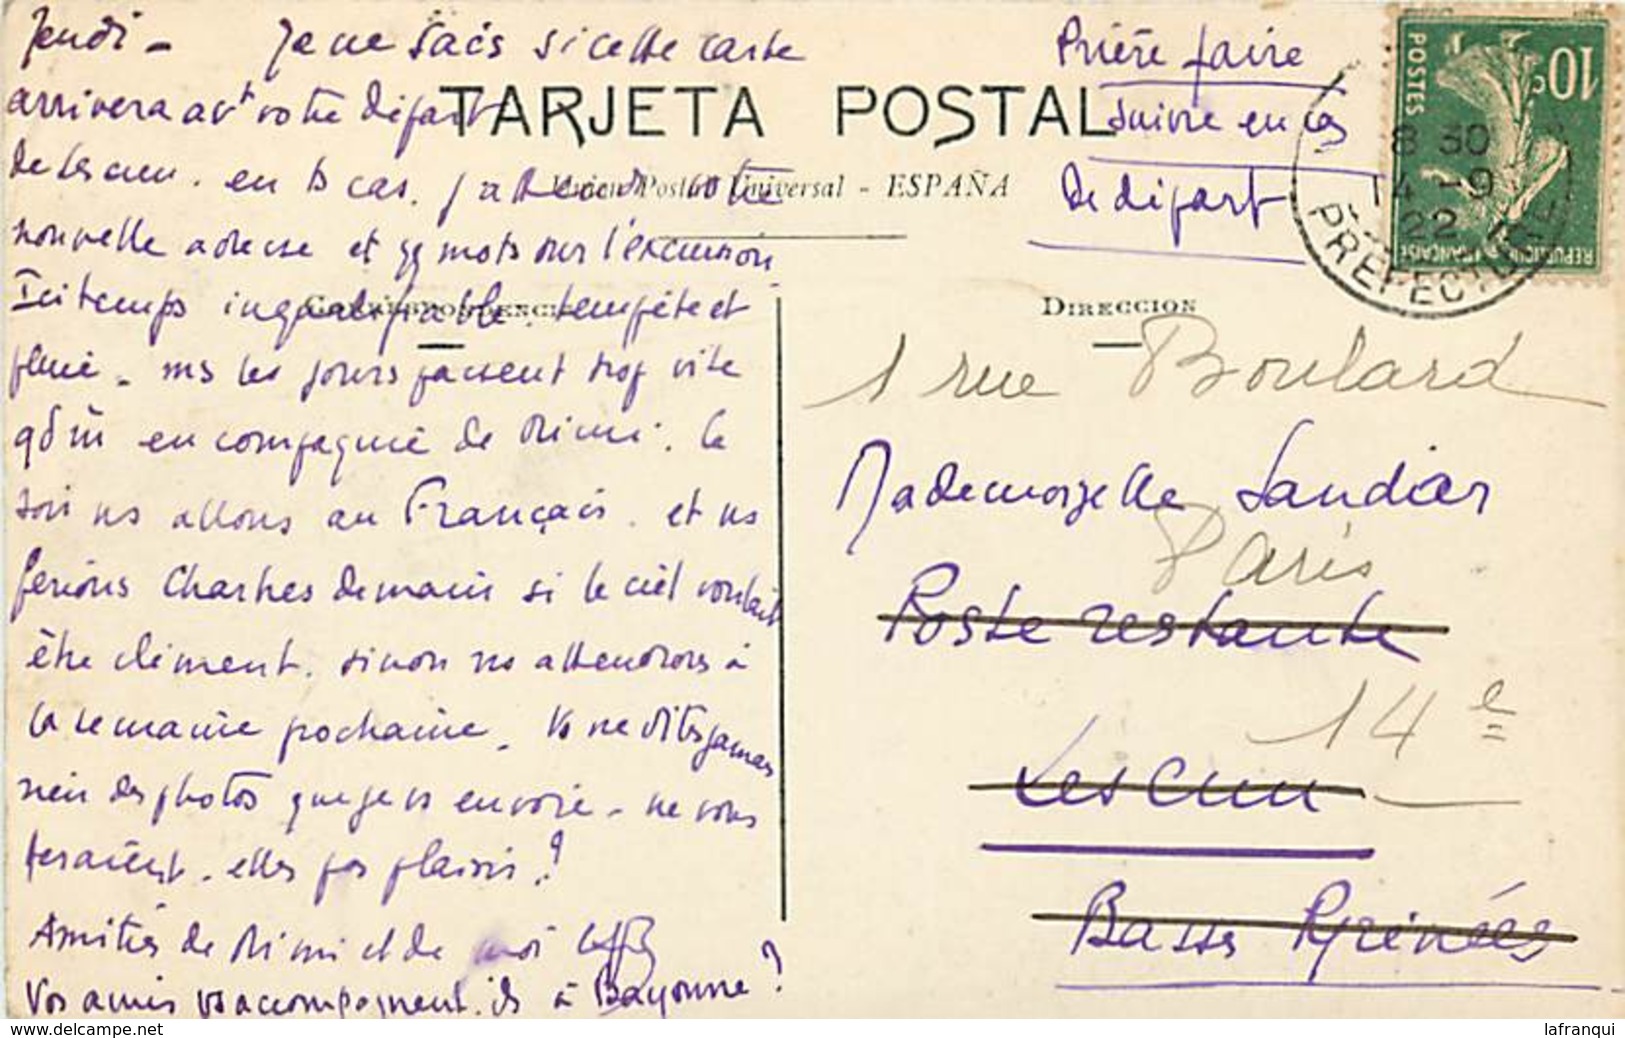 Jeudi - Je ne sais si cette carte
arrivera avt votre départ
de Lescun. en ts cas. j'attends votre
nouvelle adresse et qq mots sur l'excursion
Ici temps inqualifiable. tempête et
pluie - ms les jours passent trop vite
qd m en compagnie de Mimi. Ce
soir ns allons au Français. et ns
ferions Chartres demain si le ciel voulait
être clément. sinon ns attendrons à
la semaine prochaine. Vs ne dites jamais
rien des photos que je vs envoie - ne vous
feraient-elles pas plaisir?
Amitiés de Mimi et de moi
Vos amis vs accompagnent-ils à Bayonne?
TARJETA POSTAL
Union Postal Universal - ESPAÑA
CORRESPONDENCIA
DIRECCION
Prière faire
suivre en cas
de départ
POSTES
10c
REPUBLIQUE FRANÇAISE
8 30
14 -9
22
PREFECTURE
1 rue Boulard
Mademoiselle Landier
Paris
Poste restante
14e
Lescun
Basses Pyrénées
lafranqui
delcampe.net